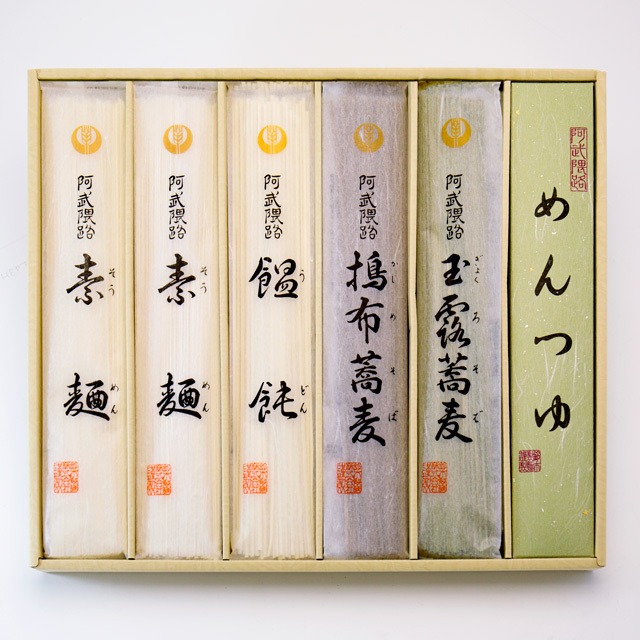 阿武隈路
素麺
そうめん
阿武隈路
素麺
そうめん
阿武隈路
饂飩
うどん
阿武隈路
搗布蕎麦
かじめそば
阿武隈路
玉露蕎麦
ぎょくろそば
阿武隈路
めんつゆ